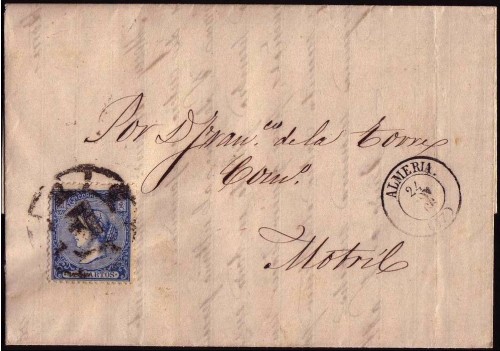 Por D. Fran.co de la Torre
Com.o
Motril
ALMERIA.
CUARTOS